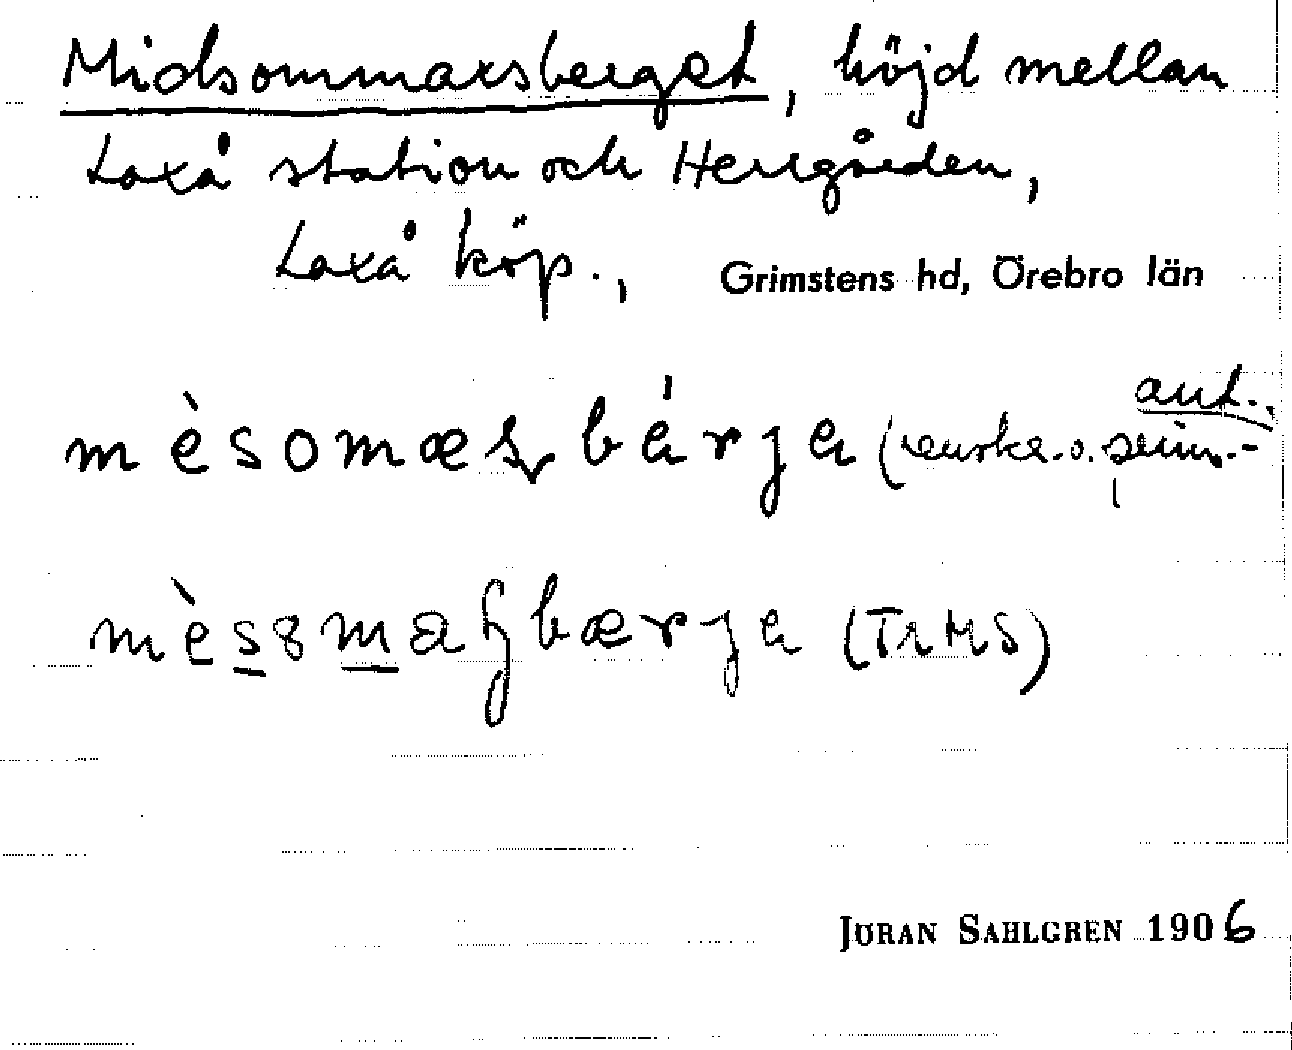 Midsommarsberget, höjd mellan
Laxå station och Herrgården,
Laxå köp., Grimstens hd, Örebro län
ant..
mèsomæs bárja (
mèssmaʂbærja (TrHS)
JÖRAN SAHLGREN 1906